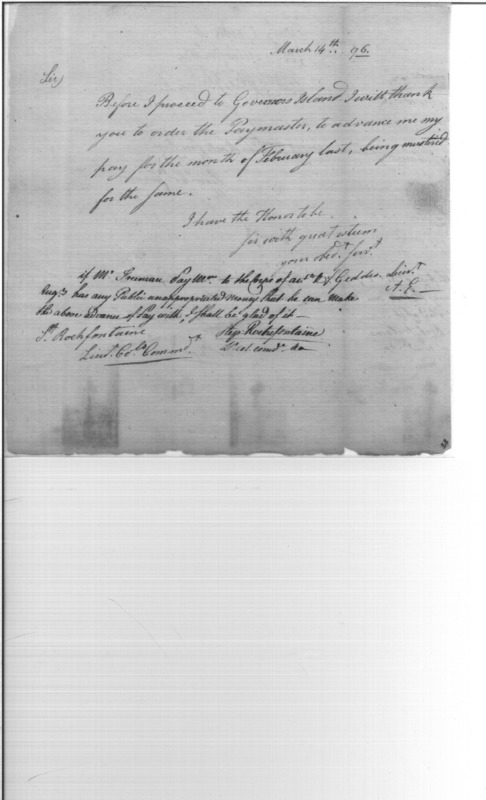 March 14th. 96.
Sir,
Before I proceed to Governors Island I will thank
you to order the Paymaster, to advance me my
pay for the month of February last, being mustered
for the same.
I have the Honor to be
Sir with great esteem
your obedt. Servt.
J. Geddes. Lieut.
A. E.
if Mr. Freeman Pay Mr. to the Corps of
Engrs has any Public unappropriated money that he can make
the above advance of Pay with, I shall be glad of it —
St. Rochfontaine Step Rochefontaine
Lieut. Col. Commdt. Lt col comdt